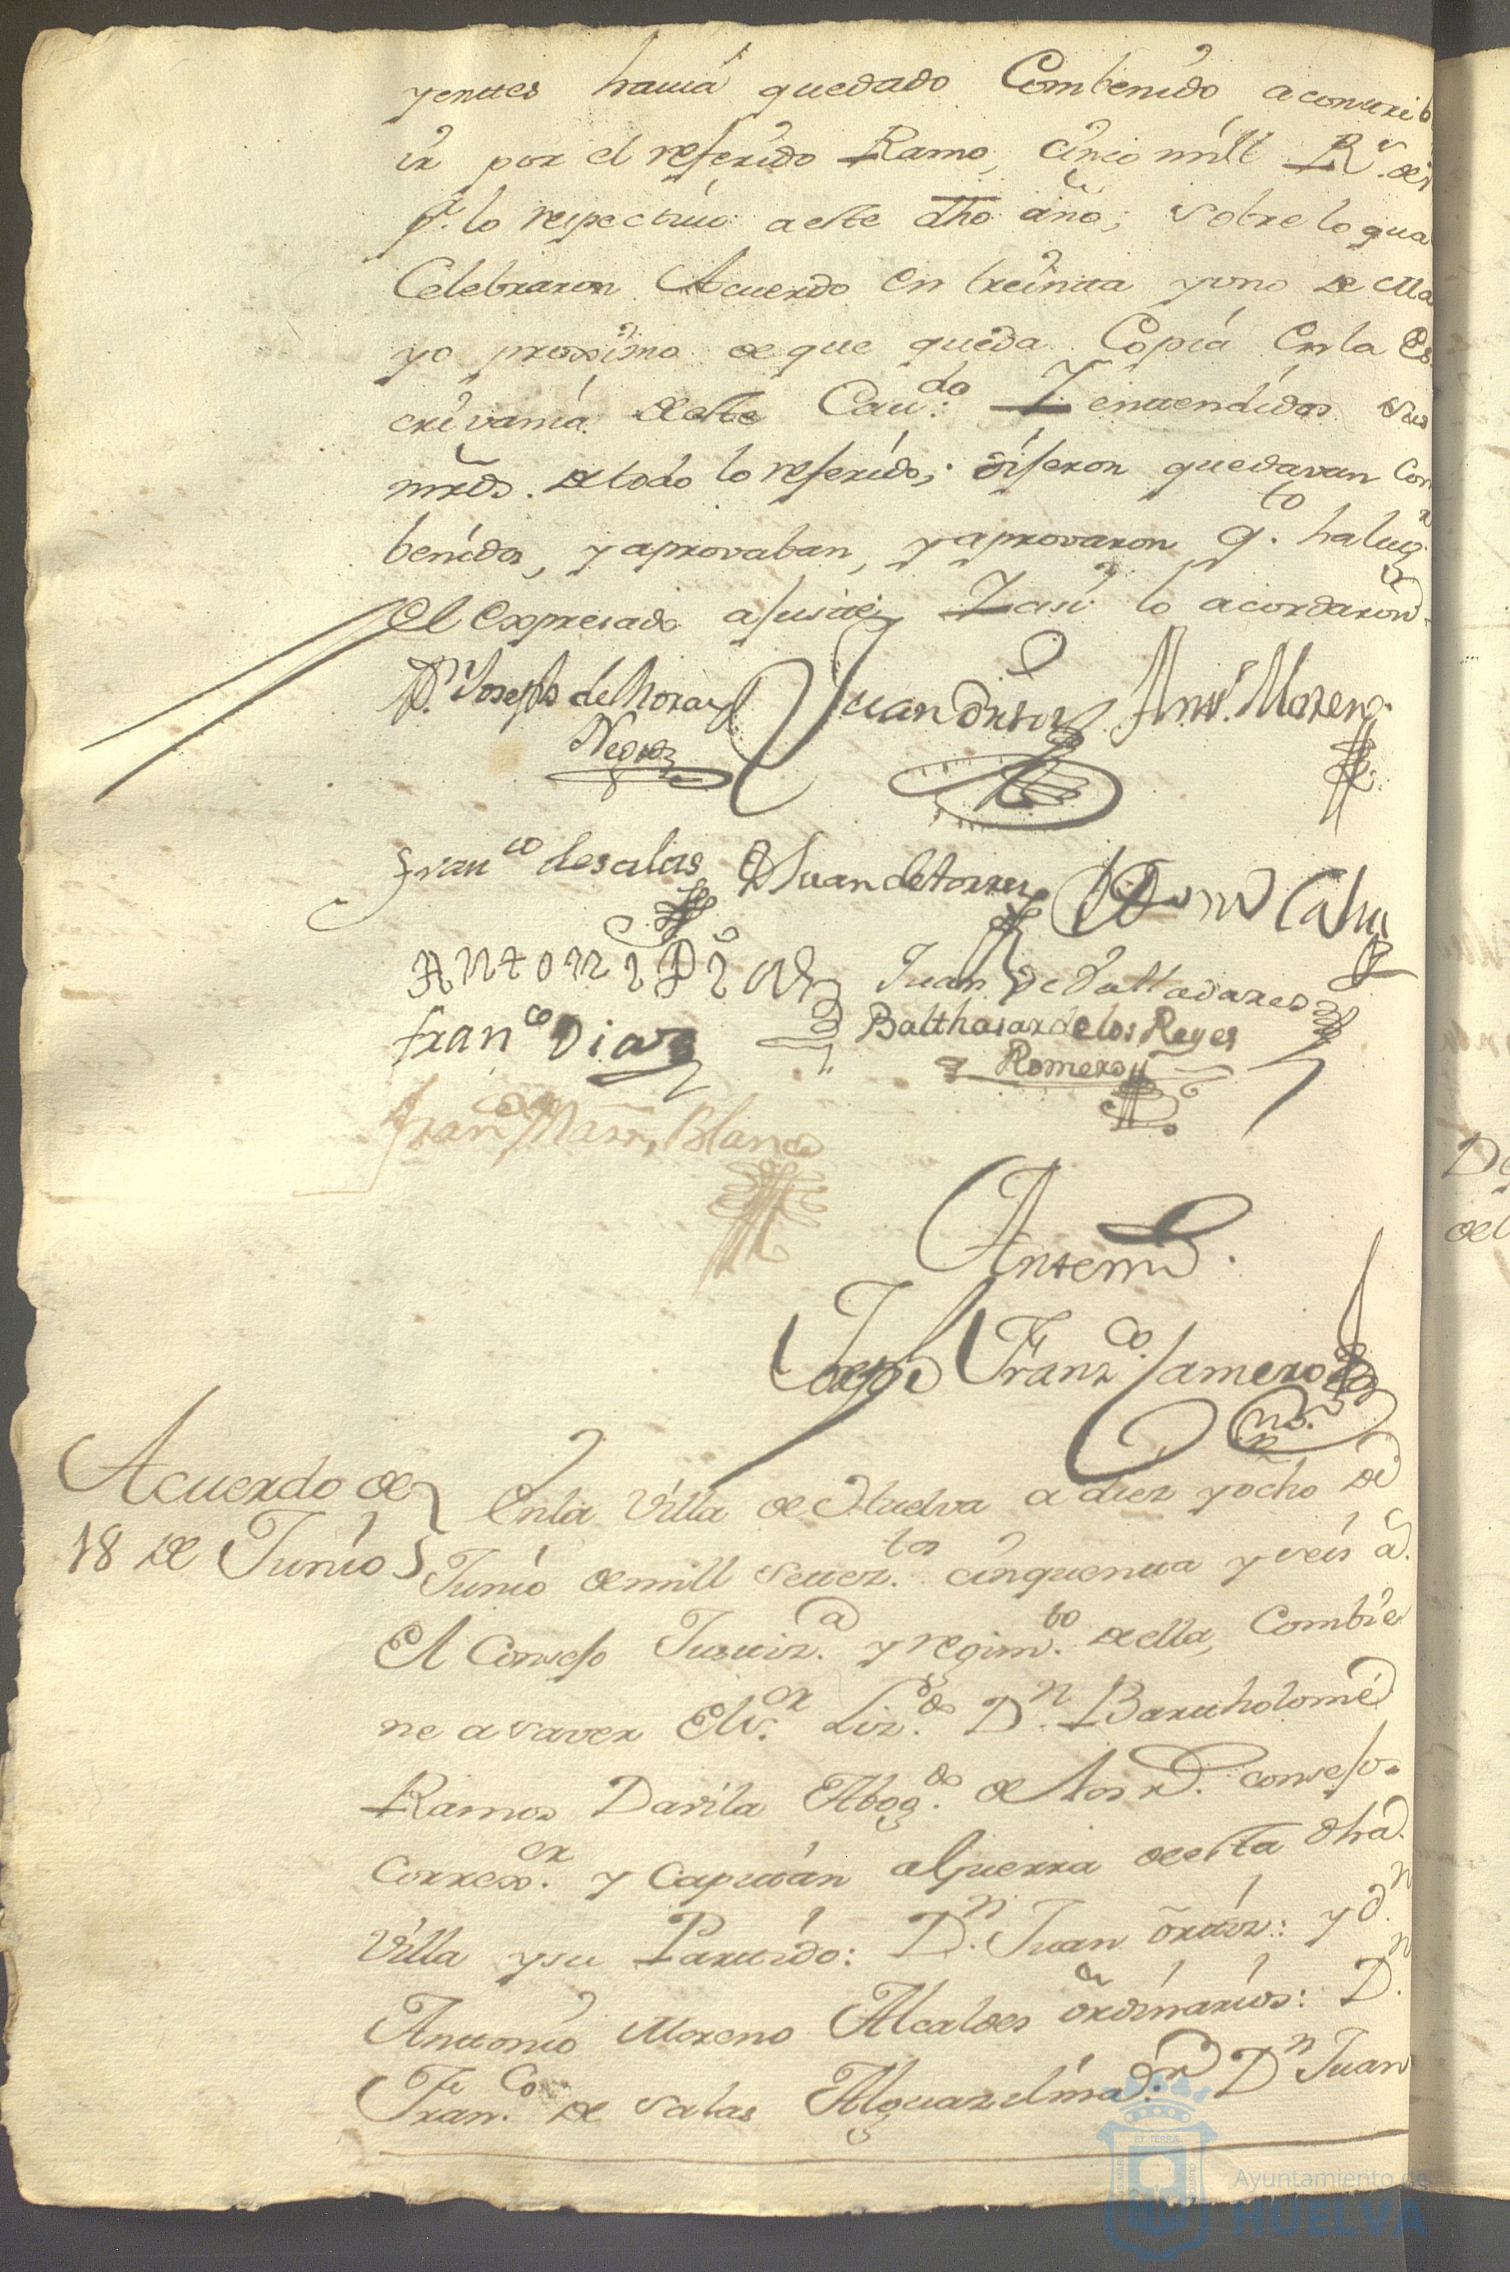 yentes havia quedado Combenido acontrib
ir por el referido Ramo, cinco mill Rs. de
pr. lo respectivo a este dho año; sobre lo qua
Celebraron Acuerdo en treinta y uno de Ma
yo proximo de que queda Copia en la Es
crivania de este Cavdo: Y entendidos sus
mrds. de todo lo referido; dijeron quedavan Con
benidos, y aprovaban, y aprovaron qto. ha lugr.
el expresado ajuste; Y asi lo acordaron
Dn. Joseph de Mora y
Negro
Juan Ortiz
Anto. Moreno
Franco de salas
Juan de torres
Juan de Valladares
Franco Diaz
Balthasar de los Reyes
Romero
Franco Marn. Blanco
Antemi.
Joseph Franzco. Camero
Acuerdo de
18 de Junio
En la Villa de Huelva a diez y ocho de
Junio de mill seteztos. cinquenta y seis as.
El Consejo Justiza. y regimto. de ella, Combie
ne a saver El sor. Lizdo. Dn. Bartholome
Ramos Davila Abogdo. de los Rs. consejos
Correxor. y Capitan a Guerra de esta dha.
Villa y su Partido: Dn. Juan Ortiz: y dn.
Anttonio Moreno Alcaldes ordinarios: Dn.
Franco. de Salas Alguazil mar. Dn Juan
Ayuntamiento de
HUELVA